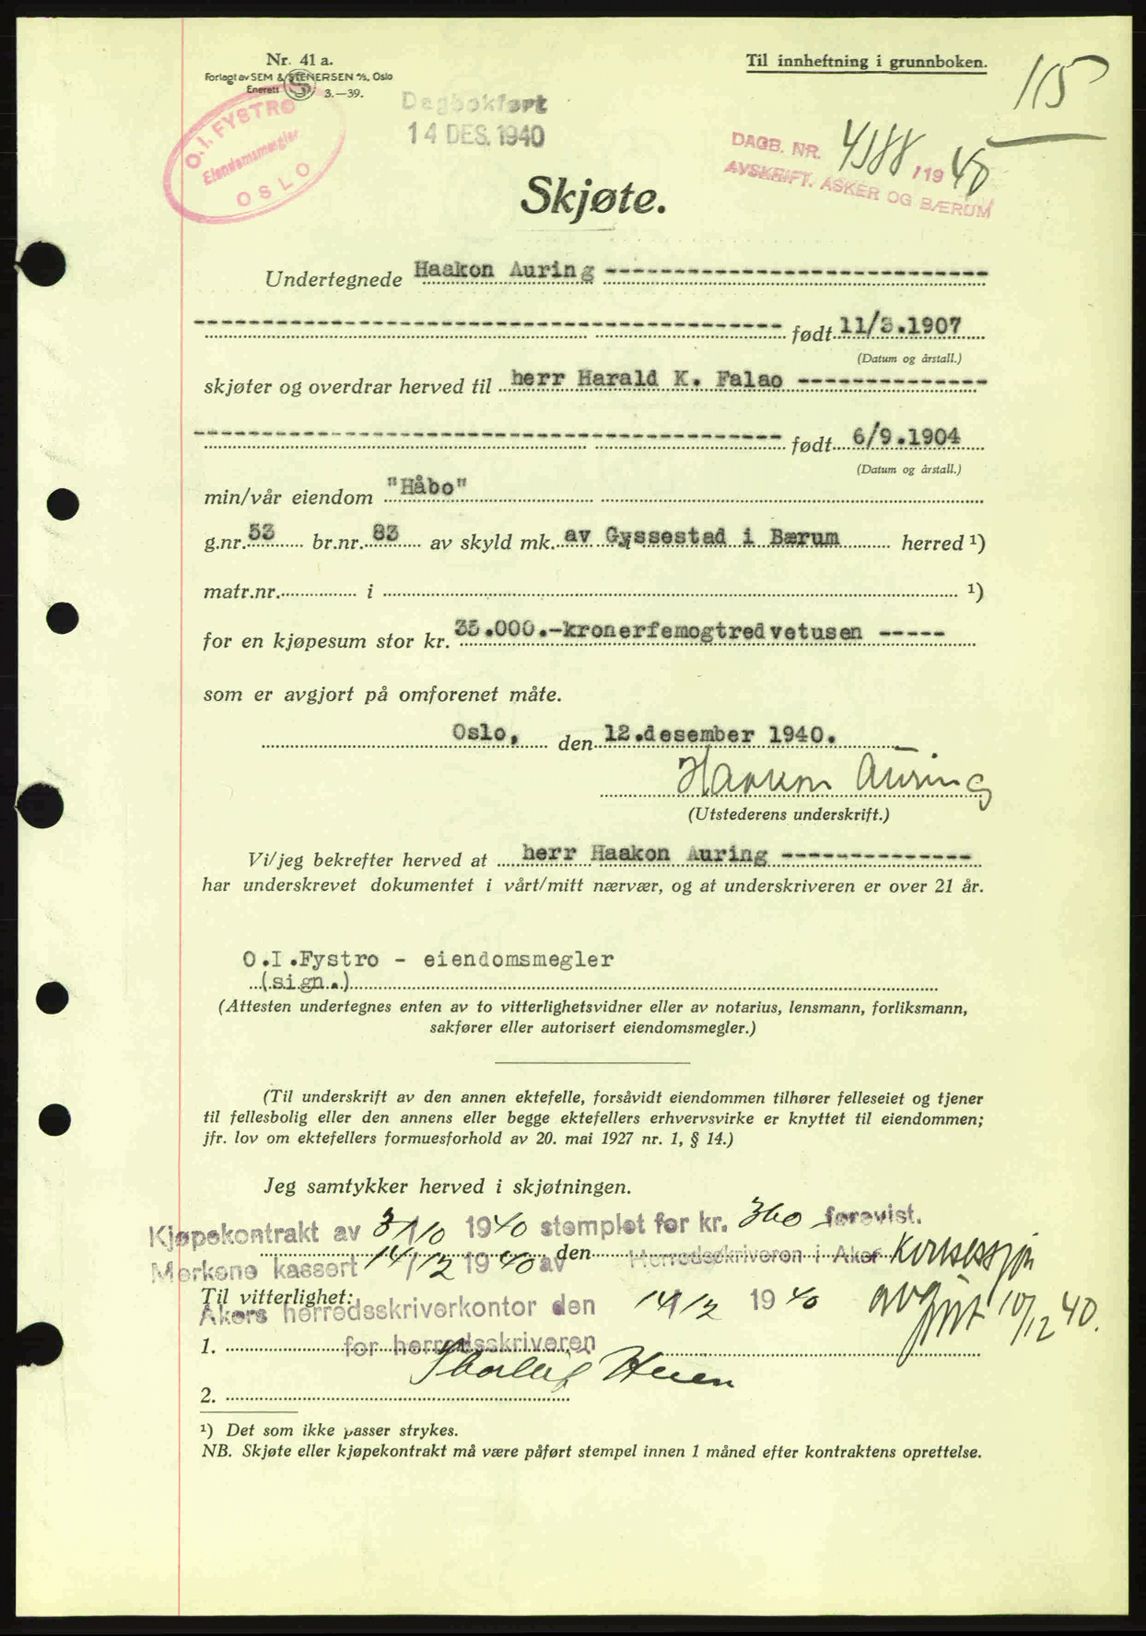 Nr. 41 a.
Forlagt av SEM & STENERSEN A/S, Oslo
Enerett 3.—39.
Til innheftning i grunnboken.
115
O. I. FYSTRO
Eiendomsmegler
OSLO
Dagbokført
14 DES. 1940
DAGB. NR. 4188 /1940
AVSKRIFT. ASKER OG BÆRUM
Skjøte.
Undertegnede Haakon Auring ----------------------------
------------------------------------------- født 11/3.1907
(Datum og årstall.)
skjøter og overdrar herved til herr Harald K. Falao --------------
------------------------------------------- født 6/9.1904
(Datum og årstall.)
min/vår eiendom "Håbo"
g.nr. 53 br.nr. 83 av skyld mk. av Gyssestad i Bærum herred ¹)
matr.nr. i ¹)
for en kjøpesum stor kr. 35.000.-kronerfemogtredvetusen -----
som er avgjort på omforenet måte.
Oslo, den 12.desember 1940.
Haakon Auring
(Utstederens underskrift.)
Vi/jeg bekrefter herved at herr Haakon Auring --------------
har underskrevet dokumentet i vårt/mitt nærvær, og at underskriveren er over 21 år.
O.I.Fystro - eiendomsmegler
(sign.)
(Attesten undertegnes enten av to vitterlighetsvidner eller av notarius, lensmann, forliksmann,
sakfører eller autorisert eiendomsmegler.)
(Til underskrift av den annen ektefelle, forsåvidt eiendommen tilhører felleseiet og tjener
til fellesbolig eller den annens eller begge ektefellers erhvervsvirke er knyttet til eiendommen;
jfr. lov om ektefellers formuesforhold av 20. mai 1927 nr. 1, § 14.)
Jeg samtykker herved i skjøtningen.
Kjøpekontrakt av 31/10 1940 stemplet for kr. 360 forevist.
den
Merkene kassert 14/12 1940 av Herredsskriveren i Aker Konsesjon
Til vitterlighet:
Akers herredsskriverkontor den 14/12 1940 avgjort 10/12 40.
1.
for herredsskriveren
Thorleif
2.
¹) Det som ikke passer strykes.
NB. Skjøte eller kjøpekontrakt må være påført stempel innen 1 måned efter kontraktens oprettelse.